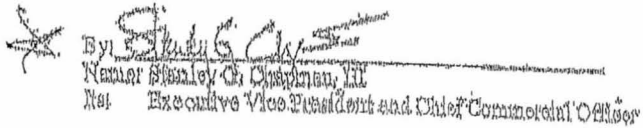 By:
Name: Stanley G. Chapman, III
Its: Executive Vice President and Chief Commercial Officer